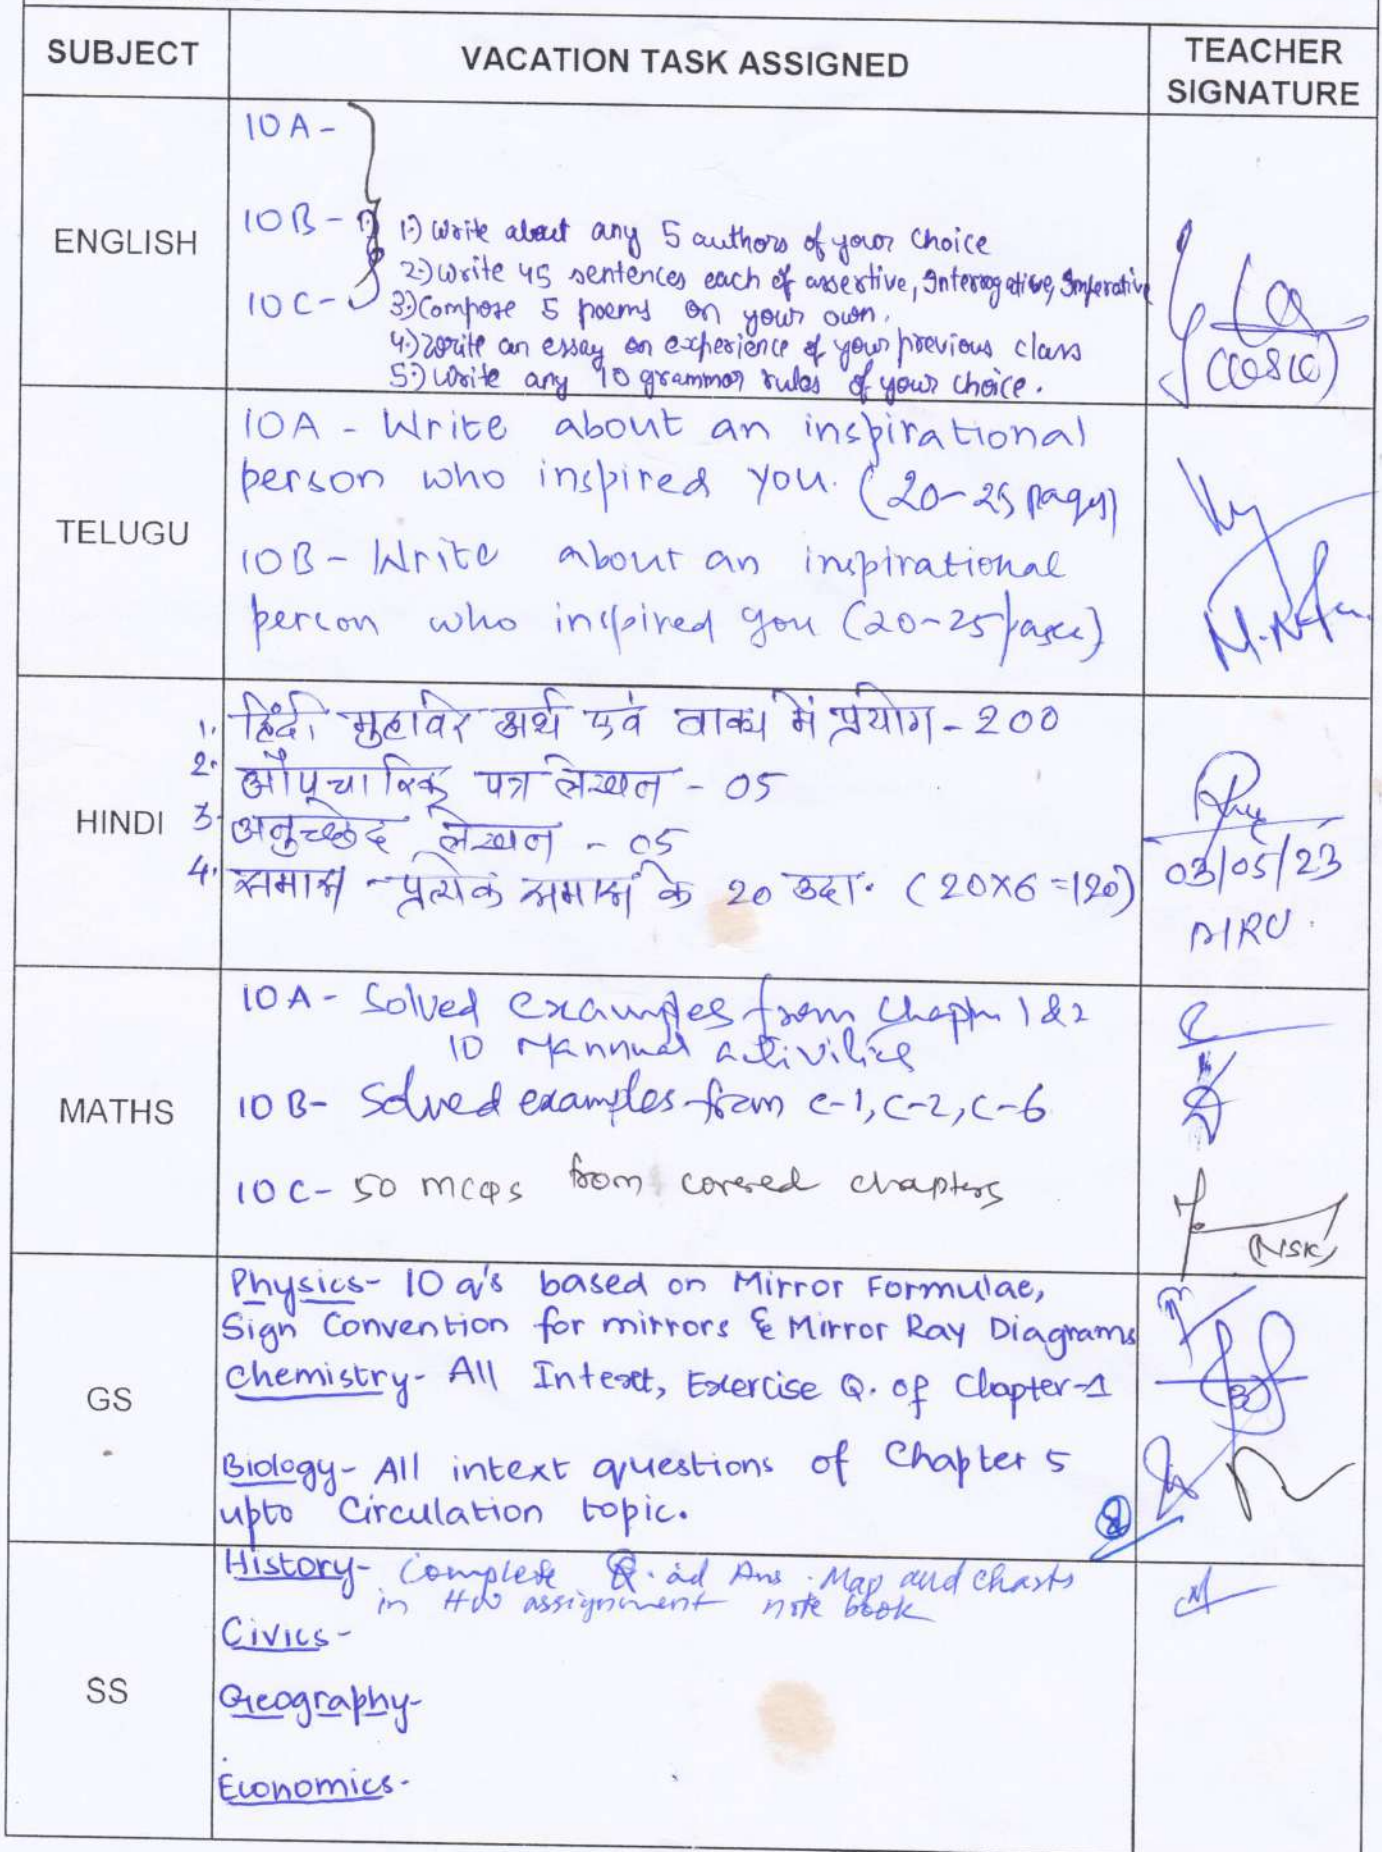 SUBJECT
VACATION TASK ASSIGNED
TEACHER
SIGNATURE
ENGLISH
10A-
10B- 1.) Write about any 5 authors of your choice
2.) Write 45 sentences each of assertive, Interrogative, Imperative
10C- 3.) Compose 5 poems on your own.
4.) Write an essay on experience of your previous class
5.) Write any 10 grammar rules of your choice.
TELUGU
10A - Write about an inspirational
person who inspired you. (20-25 pages)
10B - Write about an inspirational
person who inspired you (20-25 pages)
HINDI
1. हिंदी मुहावरे अर्थ एवं वाक्य में प्रयोग - 200
2. औपचारिक पत्र लेखन - 05
3. अनुच्छेद लेखन - 05
4. समास - प्रत्येक समास के 20 उदा. (20x6 =120)
03/05/23
MATHS
10A- Solved examples from Chapter 1&2
10 Mannual activities
10B- Solved examples from c-1, c-2, c-6
10C- 50 mcqs from covered chapters
(NSK)
GS
Physics- 10 Q's based on Mirror Formulae,
Sign Convention for mirrors & Mirror Ray Diagrams
Chemistry- All Intext, Exercise Q. of Chapter-1
Biology- All intext questions of Chapter 5
upto Circulation topic.
SS
History- Complete Q. ad Ans. Map and charts
in HW assignment note book
Civics-
Geography-
Economics-